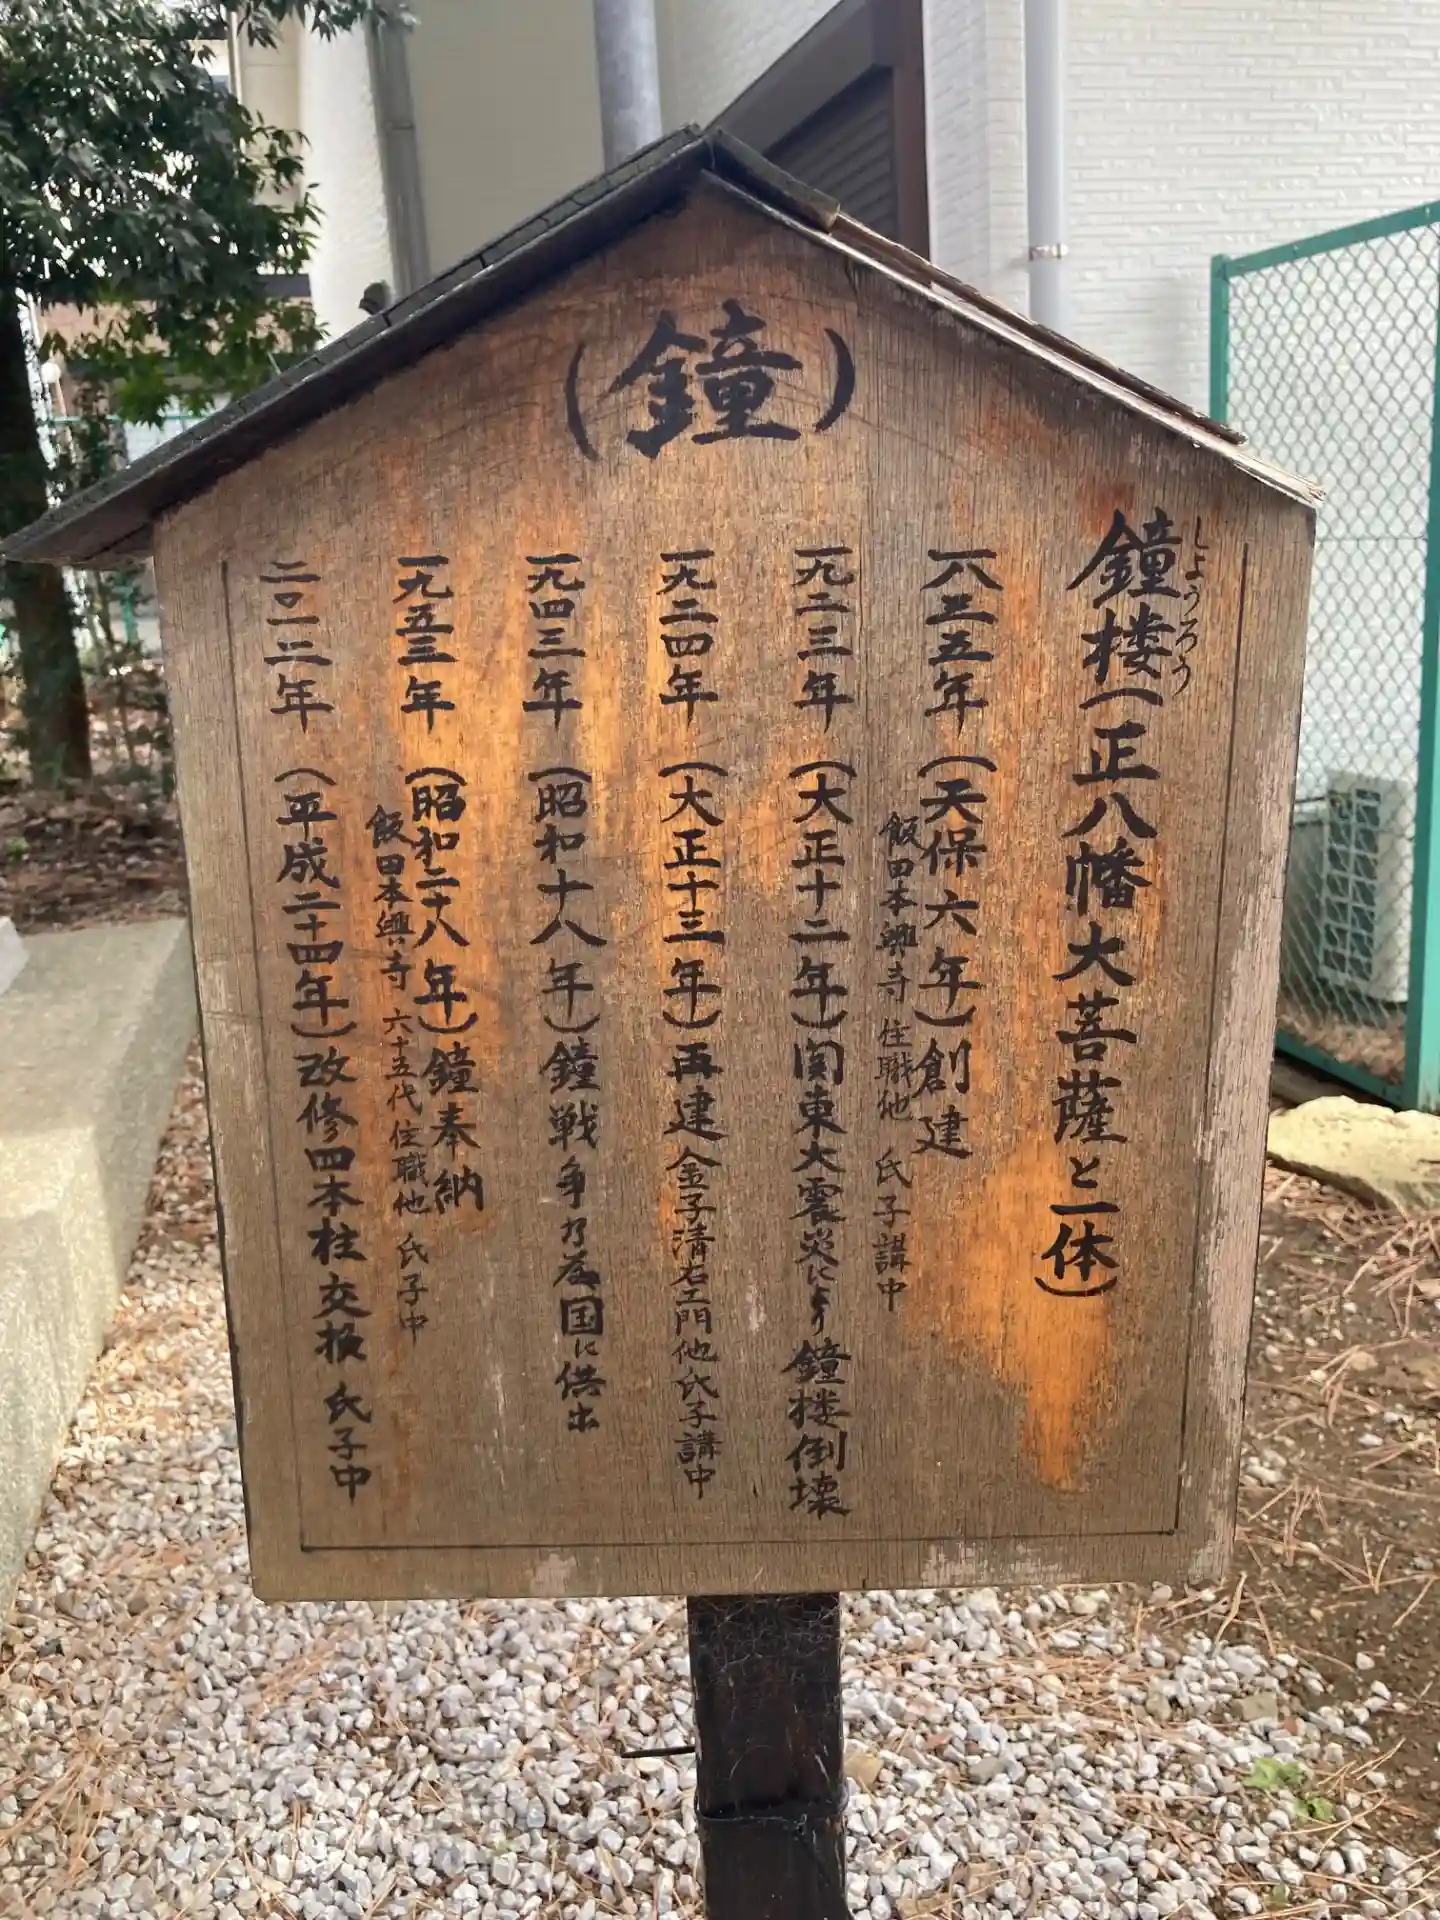 (鐘)
鐘楼(正八幡大菩薩と一体)
しょうろう
一八三五年(天保六年)創建
飯田本興寺 住職他 氏子講中
一九二三年(大正十二年)関東大震災により鐘楼倒壊
一九二四年(大正十三年)再建 金子清右エ門他氏子講中
一九四三年(昭和十八年)鐘戦争乃為国に供出
一九五三年(昭和二十八年)鐘奉納
飯田本興寺 六十五代住職他 氏子中
二〇一二年(平成二十四年)改修四本柱交換 氏子中